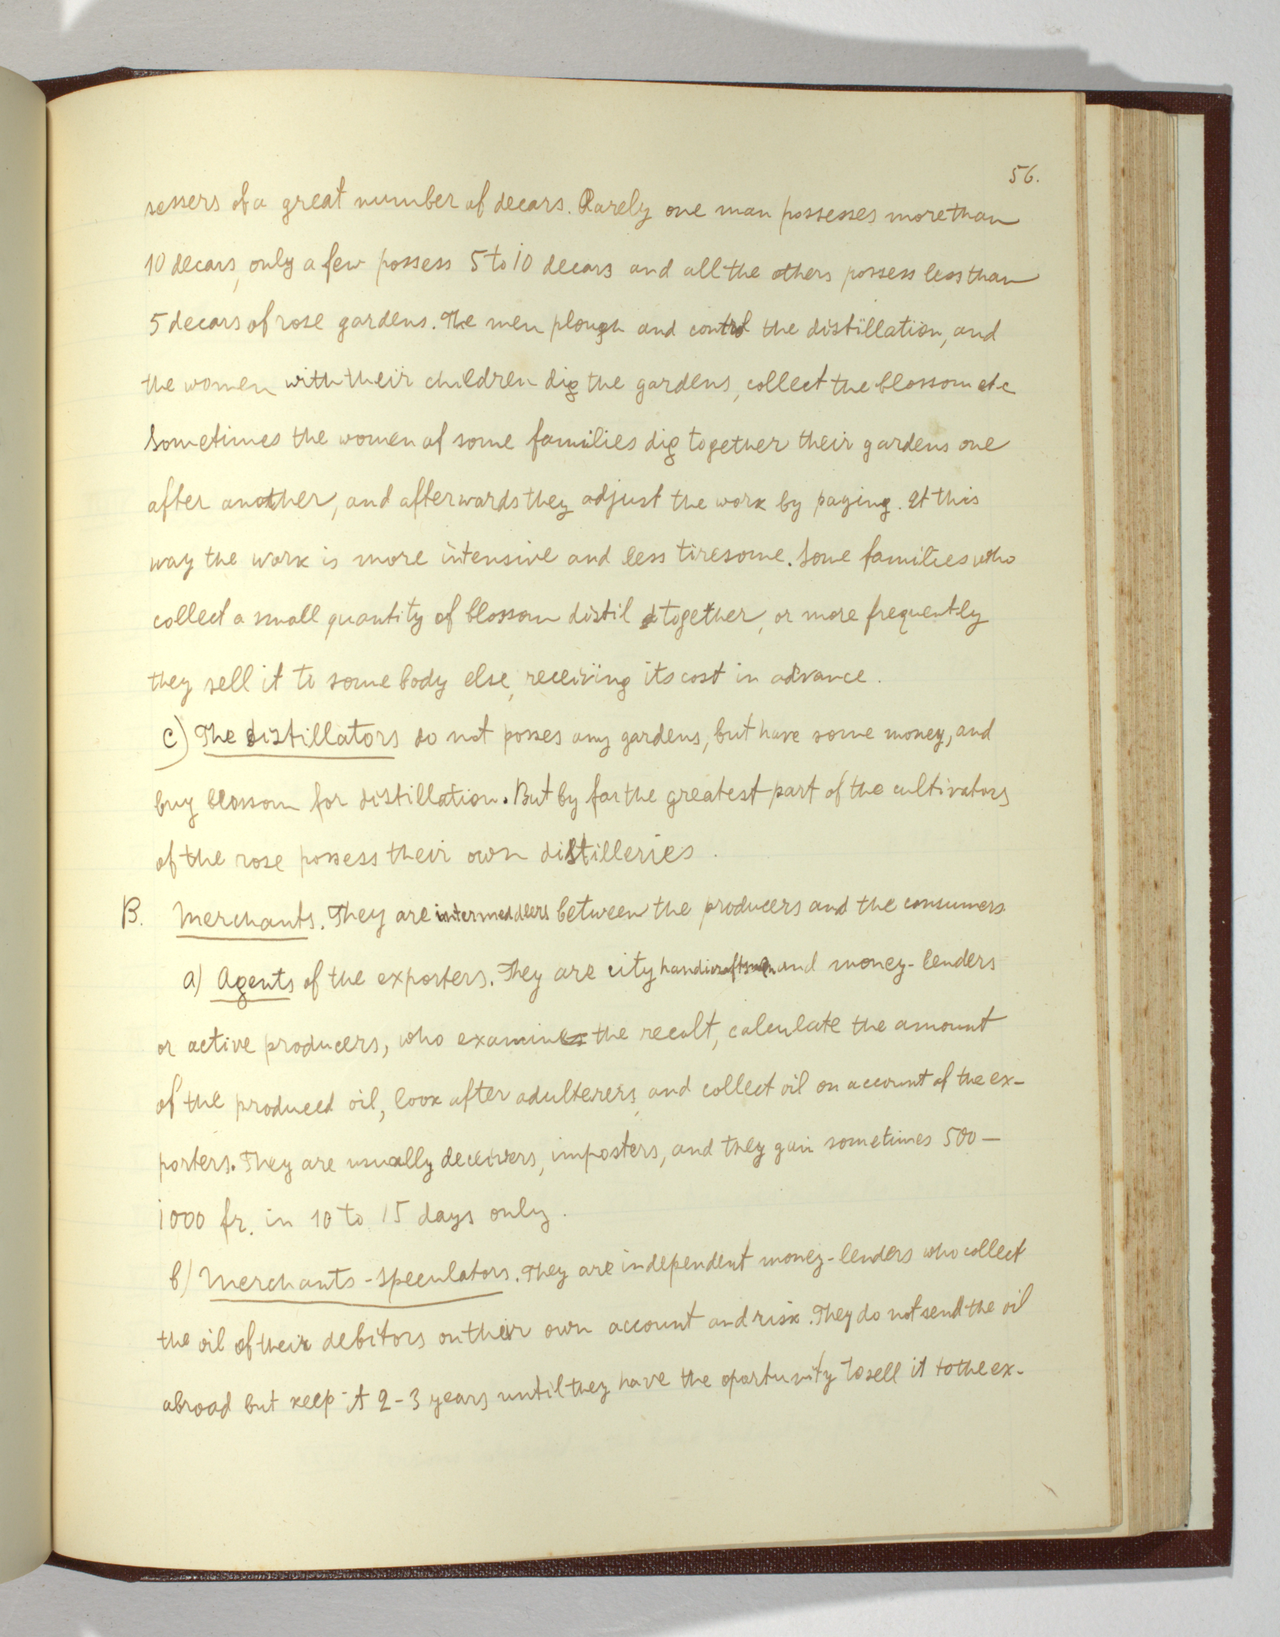 56.
sessers of a great number of decars. Rarely one man possesses more than
10 decars, only a few possess 5 to 10 decars and all the others possess less than
5 decars of rose gardens. The men plough and control the distillation, and
the women with their children dig the gardens, collect the blossom etc
Sometimes the women of some families dig together their gardens one
after another, and afterwards they adjust the work by paying. It this
way the work is more intensive and less tiresome. Some families who
collect a small quantity of blossom distil together, or more frequently
they sell it to some body else, receiving its cost in advance.
c) The distillators do not posses any gardens, but have some money, and
buy blossom for distillation. But by far the greatest part of the cultivators
of the rose possess their own distilleries.
B. Merchants. They are intermeddlers between the producers and the consumers
a) Agents of the exporters. They are city handicraftsmen and money-lenders
or active producers, who examine the recolt, calculate the amount
of the produced oil, look after adulterers, and collect oil on account of the ex-
porters. They are usually deceivers, imposters, and they gain sometimes 500 –
1000 fr. in 10 to 15 days only.
b) Merchants - speculators. They are independent money-lenders who collect
the oil of their debitors on their own account and risk. They do not send the oil
abroad but keep it 2-3 years until they have the oportunity to sell it to the ex-